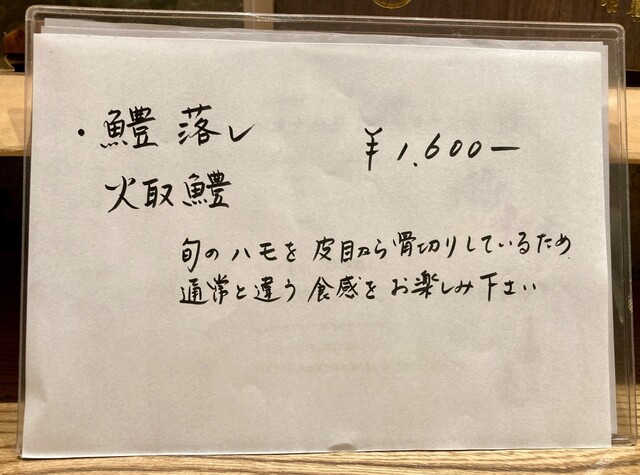 ・鱧落し
¥1,600ー
火取鱧
旬のハモを皮目から骨切りしているため
通常と違う食感をお楽しみ下さい